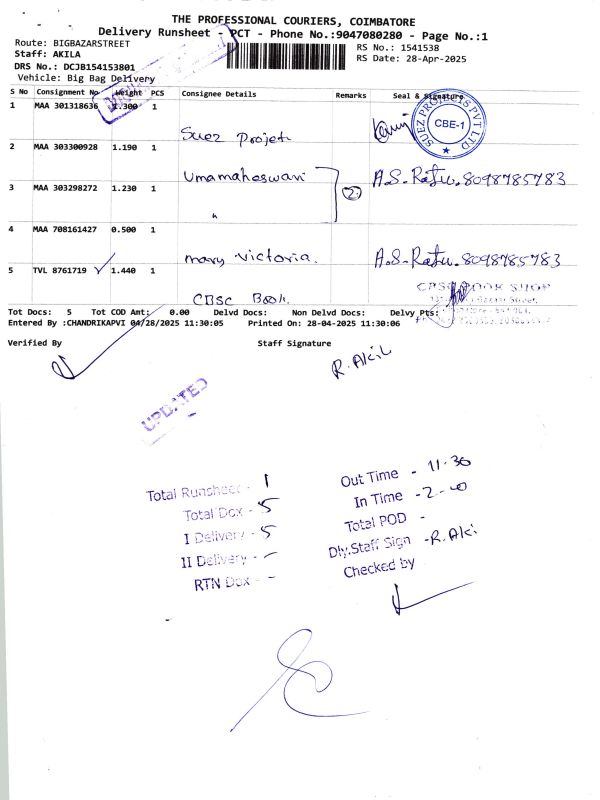 THE PROFESSIONAL COURIERS, COIMBATORE
Delivery Runsheet - PCT - Phone No.:9047080280 - Page No.:1
Route: BIGBAZARSTREET
RS No.: 1541538
Staff: AKILA
RS Date: 28-Apr-2025
DRS No.: DCJB154153801
Vehicle: Big Bag Delivery
S No Consignment No Weight PCS Consignee Details Remarks Seal & Signature
1 MAA 301318636 1.300 1
Suez Projet
SUEZ PROJECTS PVT LTD
CBE-1
2 MAA 303300928 1.190 1
Umamaheswari A.S.Raju.8098785783
3 MAA 303298272 1.230 1
" 2
4 MAA 708161427 0.500 1
mary victoria. A.S.Raju.8098785783
5 TVL 8761719 1.440 1
CBSC Book. BOOK SHOP
Tot Docs: 5 Tot COD Amt: 0.00 Delvd Docs: Non Delvd Docs: Delvy Pts:
Entered By :CHANDRIKAPVI 04/28/2025 11:30:05 Printed On: 28-04-2025 11:30:06
Verified By Staff Signature
R.Akil
UPDATED
Total Runsheet - 1
Total Dox - 5
I Delivery - 5
II Delivery -
RTN Dox -
Out Time - 11-30
In Time - 2-0
Total POD -
Dly.Staff Sign - R.Aki
Checked by